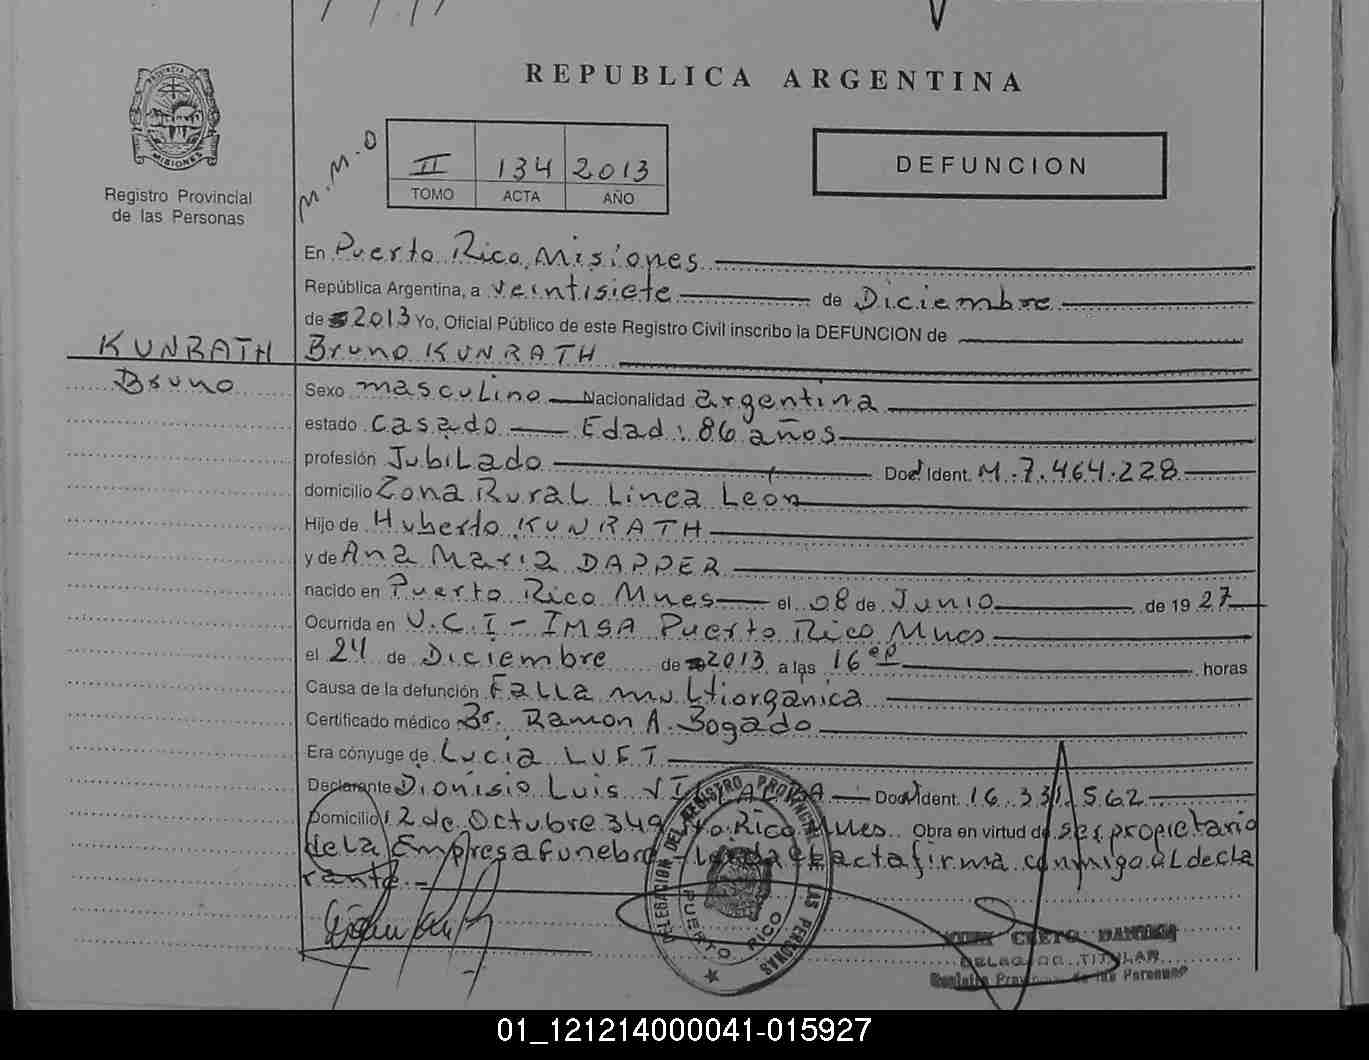 REPUBLICA ARGENTINA
PROVINCIA DE MISIONES
Registro Provincial
de las Personas
M.M.O
II 134 2013
TOMO ACTA AÑO
DEFUNCION
En Puerto Rico, Misiones
República Argentina, a veintisiete de Diciembre
de 2013 Yo, Oficial Público de este Registro Civil inscribo la DEFUNCION de
KUNRATH Bruno KUNRATH
Bruno
Sexo masculino Nacionalidad argentina
estado casado Edad: 86 años
profesión Jubilado Doc Ident. M.7.464.228
domicilio Zona Rural Linea Leon
Hijo de Huberto KUNRATH
y de Ana Maria DAPPER
nacido en Puerto Rico Mnes el 08 de Junio de 1927
Ocurrida en U.C.I - IMSA Puerto Rico Mnes
el 24 de Diciembre de 2013 a las 16 horas
Causa de la defunción Falla multiorgánica
Certificado médico Dr. Ramon A. Bogado
Era cónyuge de Lucía LUFT
Declarante Dionisio Luis Doc Ident. 16.331.562
Domicilio 12 de Octubre 349 Pto. Rico Mnes Obra en virtud de ser propietario
de la Empresa funebre - Leida el acta firma conmigo el decla
rante.-
DELEGACION DEL REGISTRO PROVINCIAL DE LAS PERSONAS
PUERTO RICO
DELEGADO TITULAR
Registro Provincial de las Personas
01_121214000041-015927